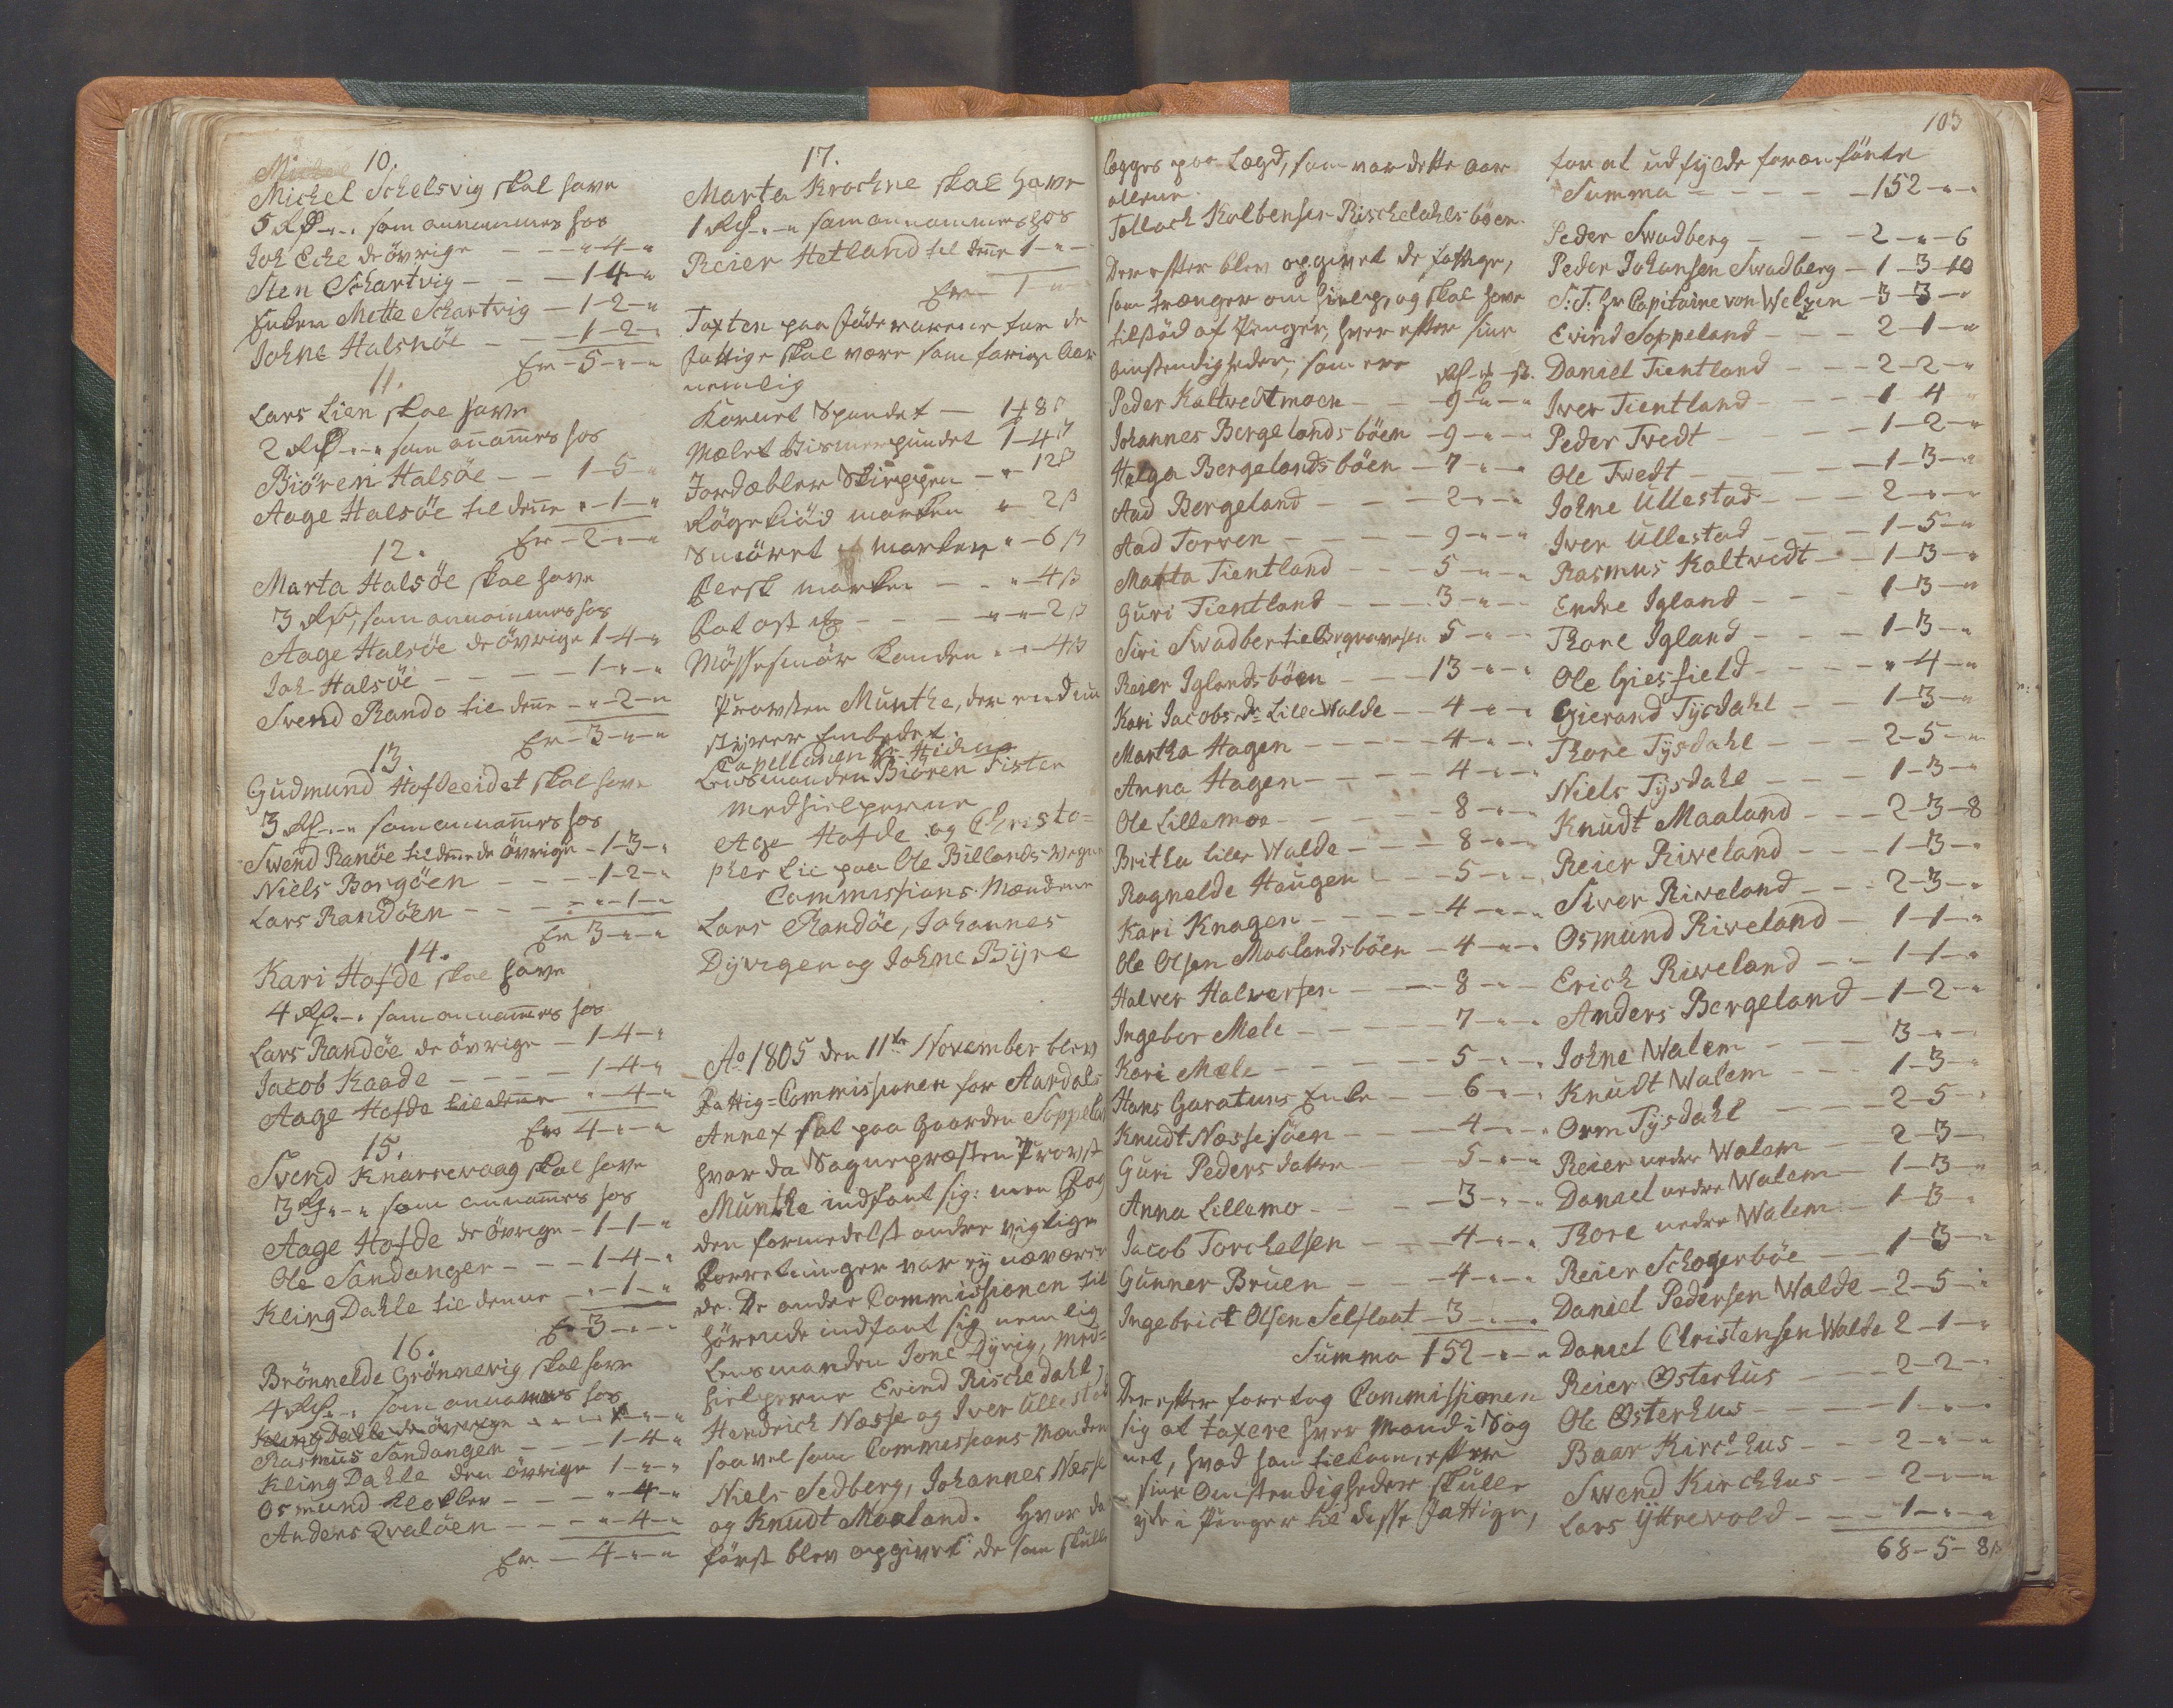 10.
Michel Schelsvig skal have
5 Rd - " - " som annammes hos
Joh Eche de övrige - - - " - 4 - "
Sten Schartvig - - - 1 - 4 - "
Enken Mette Schartvig - 1 - 2 - "
Johne Halsnöe - - - 1 - 2 - "
Er - 5 - " - "
11.
Lars Lien skal have
2 Rd - " - " som annammes hos
Biören Halsöe - - - 1 - 5 - "
Aage Halsöe til denne " - 1 - "
Er - 2 - " - "
12.
Marta Halsöe skal have
3 Rd, som annammes hos
Aage Halsöe de övrige 1 - 4 - "
Joh Halsöe - - - - 1 - " - "
Svend Rando til denne - " - 2 - "
Er - 3 - " - "
13.
Gudmund Hofdeeidet skal have
3 Rd - " - " som annammes hos
Swend Ranöe til denne de övrige - 1 - 3 - "
Niels Borgöen - - - 1 - 2 - "
Lars Randöen - - - " - 1 - "
Er 3 - " - "
14.
Kari Hofde skal have
4 Rd - " - " som annammes hos
Lars Randöe de övrige - 1 - 4 - "
Jacob Kaade - - - - 1 - 4 - "
Aage Hofde til denne " - 4 - "
Er 4 - " - "
15.
Svend Knarrevaag skal have
3 Rd - " - " som annammes hos
Aage Hofde de övrige - 1 - 1 - "
Ole Sandanger - - - 1 - 4 - "
Kling Dahle til denne - " - 1 - "
Er 3 - " - "
16.
Brönnelde Grönnevig skal have
4 Rd - " - " som annammes hos
Kling Dahle de övrige
Rasmus Sandanger - - - 1 - 4 - "
Kling Dahle den övrige 1 - " - "
Osmund Klokker - - - " - 4 - "
Anders Qvalöen - - - " - 4 - "
Er - 4 - " - "
17.
Marta Krochne skal have
1 Rd - " - " som annammes hos
Reier Hetland til denne 1 - " - "
Er - 1 - "
Taxten paa Födevarene for de
Fattige skal være som forige Aar
nemlig
Kornet Spandet - 1 - 8 ß
Mælet Bismerpundet 1 - 4 ß
Jordæbler Skieppen - " - 12 ß
Röget Kiöd marken " - 2 ß
Smöret marken " - 6 ß
Flesk marken - - " - 4 ß
Gat ost - - - " - 2 ß
Mössesmör Kanden " - 4 ß
Provsten Munthe, der endnu
styrer Embedet.
Capellanen Hr
Lensmanden Biören Fister
Medhielperne
Age Hofde og Christo=
pher Lie paa Ole Billands vegne
Commissions-Mændene
Lars Randöe, Johannes
Dyvigen og Johne Byre
Ao 1805 den 11te November blev
Fattig=Commissionen for Aardals
Annex sat paa Gaarden Soppeland
hvor da Sognepræsten Provst
Munthe indfant sig: men Fog
den formedelst andre vigtige
Forretninger var ey nærværen
de. De andre Commissionen til
hörende indfant sig nemlig
Lensmanden Jone Dyvig, Med=
hielperne Evind Rischedahl,
Hendrich Næsse og Iver Ullestad
saavel som Commissions Mændene
Niels Sedberg, Johannes Næsse
og Knudt Maaland. Hvor da
först blev opgivet de som skulle
103
lægges paa Lægd, som var dette Aar
allene
Tollach Kolbensen Rischedahlsböen
Derefter blev opgivet de fattige,
som trænger om hielp, og skal have
tilskud af Penger, hver efter sine
Omstendigheder, som ere Rd - m - ß.
Peder Kaltvedtmoen - - 9 - " - "
Johannes Bergelandsböen - 9 - " - "
Helga Bergelandsböen - 7 - " - "
Aad Bergeland - - - 2 - " - "
Aad Torven - - - - 9 - " - "
Matta Tientland - - - 5 - " - "
Guri Tientland - - - 3 - " - "
Siri Swadber til Begravelsen 5 - " - "
Reier Iglandsböen - - - 13 - " - "
Kari Jacobs Dr Lille Walde - - 4 - " - "
Martha Hagen - - - - 4 - " - "
Anna Hagen - - - - 4 - " - "
Ole Lillemoe - - - - 8 - " - "
Britha Lille Walde - - - 8 - " - "
Ragnelde Haugen - - - 5 - " - "
Kari Knagen - - - - 4 - " - "
Ole Olsen Maalandsböen - 4 - " - "
Halver Halversen - - - 8 - " - "
Ingebor Mele - - - - 7 - " - "
Kari Mele - - - - 5 - " - "
Hans Garatuns Enke - - 6 - " - "
Knudt Næssesöen - - - 4 - " - "
Guri Peders datter - - - 5 - " - "
Anna Lillemo - - - - 3 - " - "
Jacob Torchelsen - - - 4 - " - "
Gunner Bruen - - - 4 - " - "
Ingebrict Olsen Selflaat - 3 - " - "
Summa 152 - " - "
Derefter foretog Commissionen
sig at taxere hver Mand i Sog
net, hvad han tilkom, efter
sine Omstendigheder skulle
yde i Penger til disse Fattige,
for at udfylde foranförte
Summa - - - - - 152 - " - "
Peder Swadberg - - - 2 - " - 6
Peder Johansen Swadberg - 1 - 3 - 10
S: T: Hr Capitaine von Welzen - 3 - 3 - "
Evind Soppeland - - - 2 - 1 - "
Daniel Tientland - - - 2 - 2 - "
Iver Tientland - - - 1 - 4 - "
Peder Tvedt - - - - 1 - 2 - "
Ole Twedt - - - - 1 - 3 - "
Johne Ullestad - - - 2 - " - "
Iver Ullestad - - - 1 - 5 - "
Rasmus Kaltvedt - - 1 - 3 - "
Endre Igland - - - 1 - 3 - "
Thore Igland - - - 1 - 3 - "
Ole Giesfield - - - " - 4 - "
Gierand Tysdahl - - 1 - 3 - "
Thore Tysdahl - - - 2 - 5 - "
Niels Tysdahl - - - 1 - 3 - "
Knudt Maaland - - - 2 - 3 - 8
Reier Riveland - - - 1 - 3 - "
Siver Riveland - - - 2 - 3 - "
Osmund Riveland - 1 - 1 - "
Erich Riveland - - 1 - 1 - "
Anders Bergeland - 1 - 2 - "
Johne Walem - - - 3 - " - "
Knudt Walem - - - 1 - 3 - "
Orm Tysdahl - - - 2 - 5 - "
Reier nedre Walem - 2 - 3 - "
Daniel nedre Walem - 1 - 3 - "
Thore nedre Walem - 1 - 3 - "
Reier Schogerböe - - 1 - 3 - "
Daniel Pedersen Walde - 2 - 5 - "
Daniel Christensen Walde 2 - 1 - "
Reier Østerhus - - - 2 - 2 - "
Ole Østerhus - - - 1 - " - "
Baar Kirchhus - - - 2 - " - "
Swend Kirchhus - - 2 - " - "
Lars Yttrevold - - - 1 - " - "
68 - 5 - 8 ß